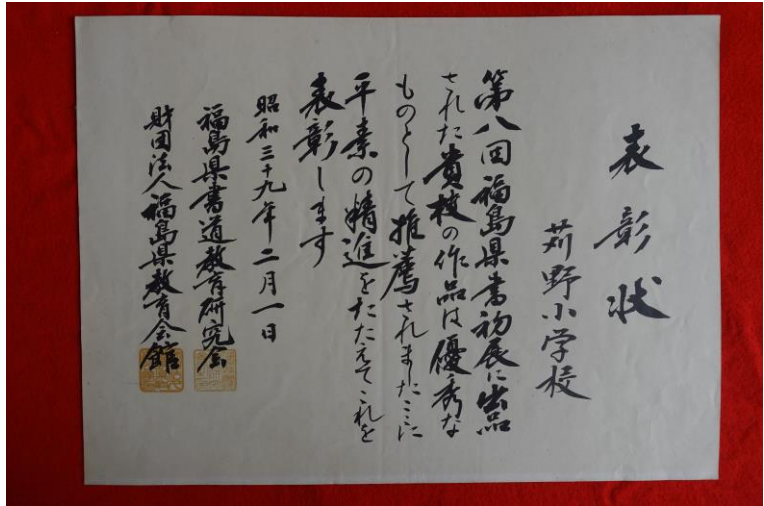 表彰状
苅野小学校
第八回福島県書初展に出品
された貴校の作品は優秀な
ものとして推薦されましたここに
平素の精進をたたえてこれを
表彰します
昭和三十九年二月一日
福島県書道教育研究会
財団法人福島県教育会館